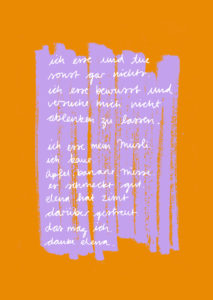 ich esse und tue
sonst gar nichts.
ich esse bewusst und
versuche mich nicht
ablenken zu lassen.

ich esse mein müsli.
ich kaue.
apfel, banane, nüsse.
er schmeckt gut.
elena hat zimt
darüber gestreut.
das mag ich.
danke elena.